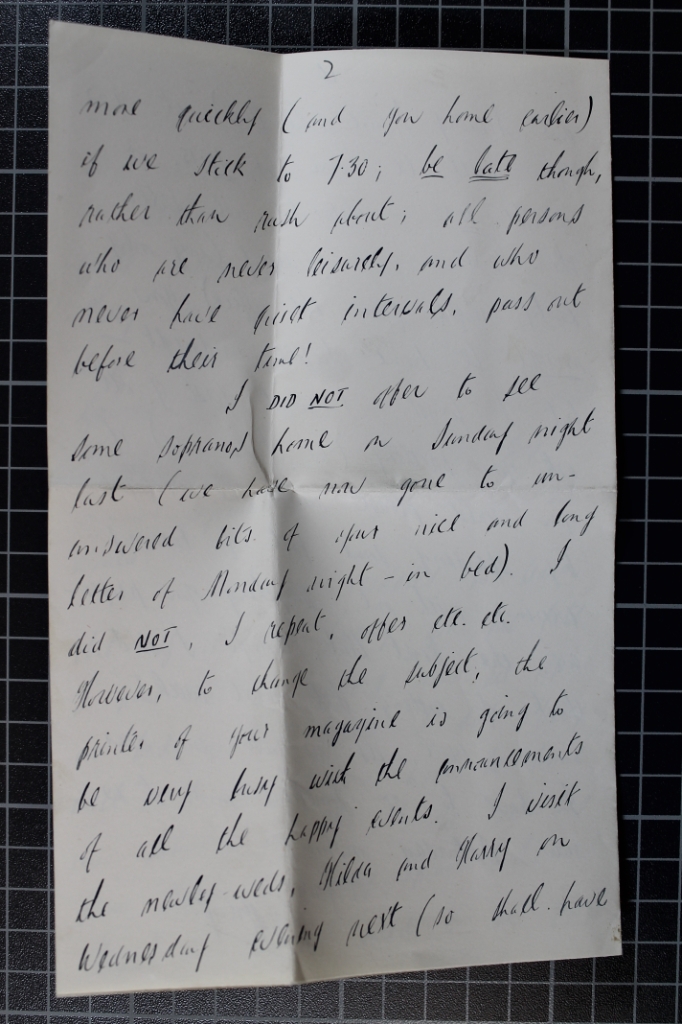 2
more quickly (and you home earlier)
if we stick to 7.30; be late though,
rather than rush about; all persons
who are never leisurely, and who
never have quiet intervals, pass out
before their time!
I DID NOT offer to see
some sopranos home on Sunday night
last (we have now gone to un-
answered bits of your nice and long
letter of Monday night - in bed). I
did NOT, I repeat, offer etc. etc.
However, to change the subject, the
printer of your magazine is going to
be very busy with the announcements
of all the happy events. I visit
the newly-weds, Hilda and Harry on
Wednesday evening next (so shall have